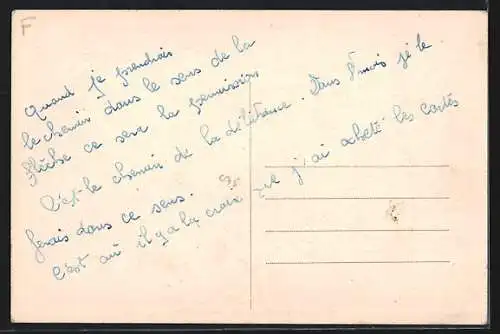 F
Quand je prendrais
le chemin dans le sens de la
flèche ce sera la permission
C'est le chemin de la délivrance. Dans 8 mois je le
ferais dans ce sens.
C'est où il y a la croix que j'ai acheté les cartes